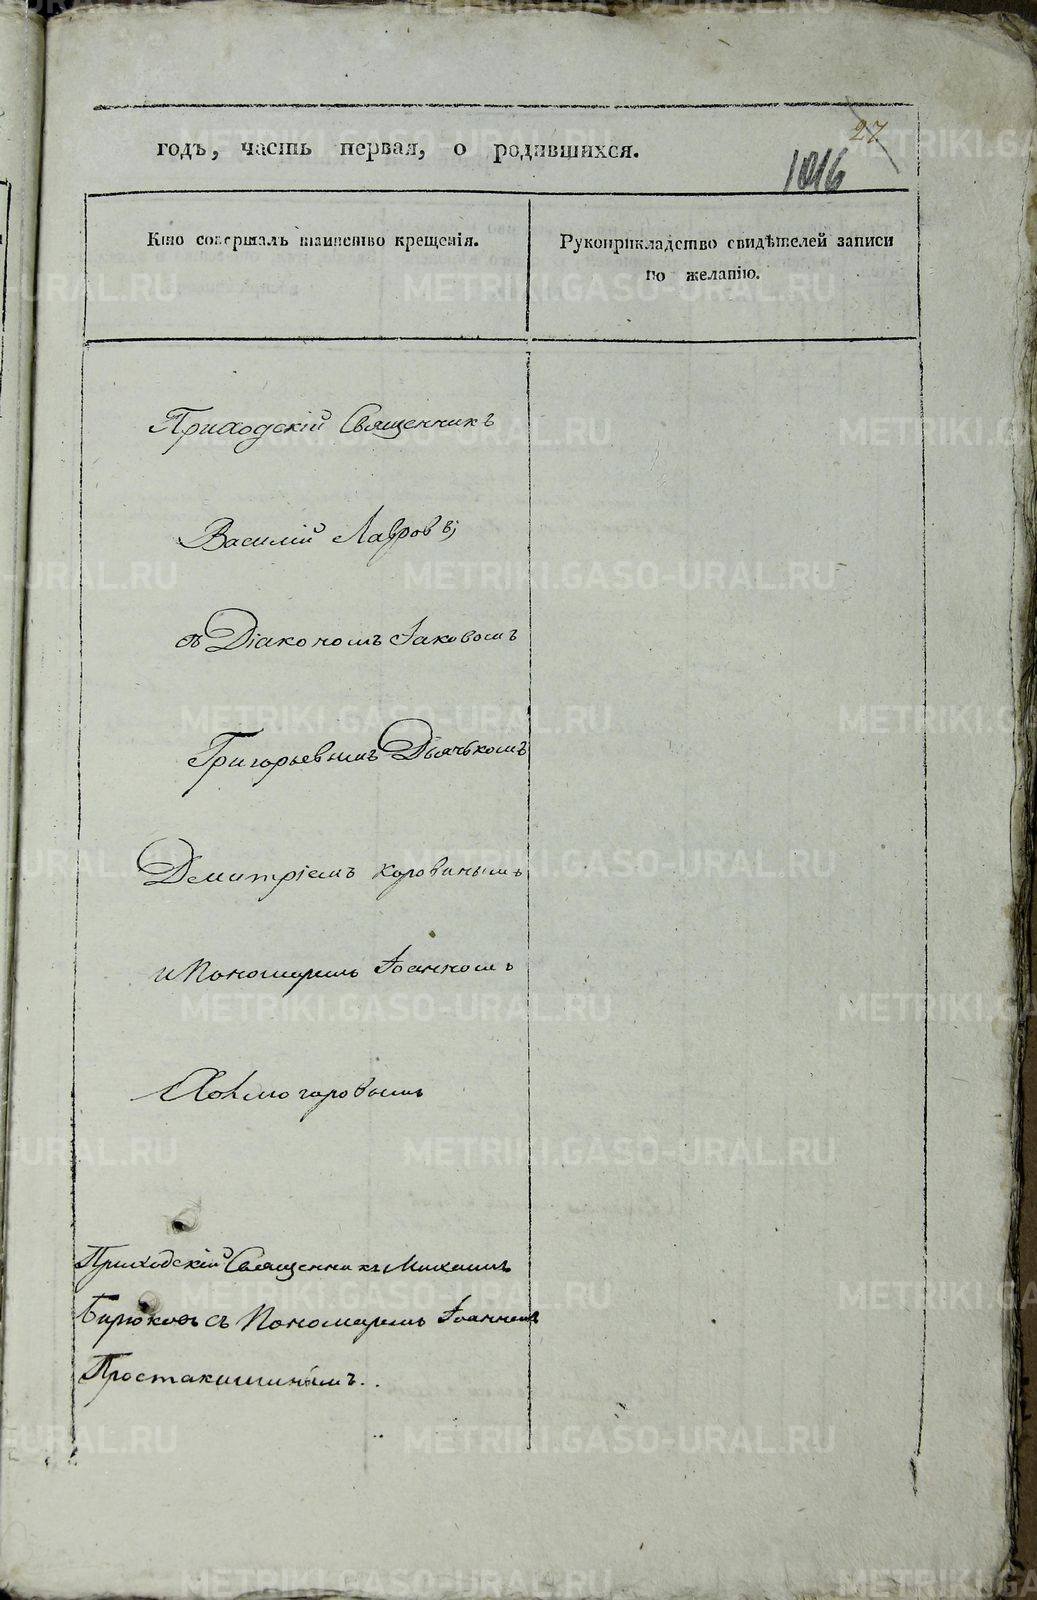 27
годъ, часть первая, о родившихся.
1016
Кто совершалъ таинство крещенія.
Рукоприкладство свидѣтелей записи
по желанію.
Приходскій Священникъ
Василій Лавровъ,
съ Діакономъ Іаковомъ
Григорьевымъ Дьячькомъ
Демитріемъ Коровинымъ
и Пономаремъ Іоанномъ
Холмогоровымъ
Приходскій Священникъ Михаилъ
Бирюковъ съ Пономаремъ Іоанномъ
Простакишинымъ..
METRIKI.GASO-URAL.RU